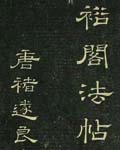 裕閣法帖
唐褚遂良